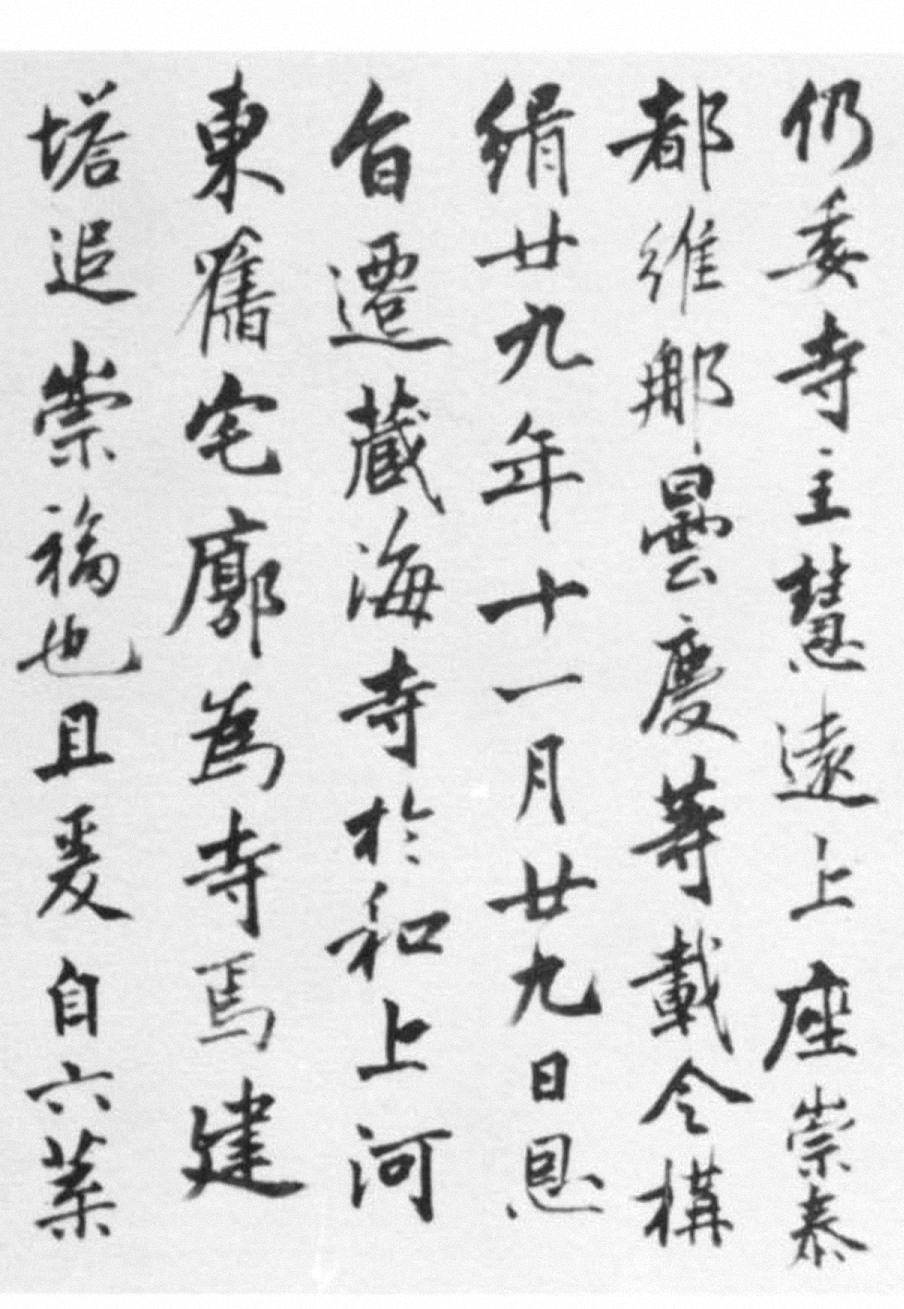 仍委寺主慧遠上座崇泰
都維那曇慶等載令構
緝廿九年十一月廿九日恩
旨遷藏海寺於和上河
東舊宅廓為寺焉建
塔追崇福也且爰自六葉